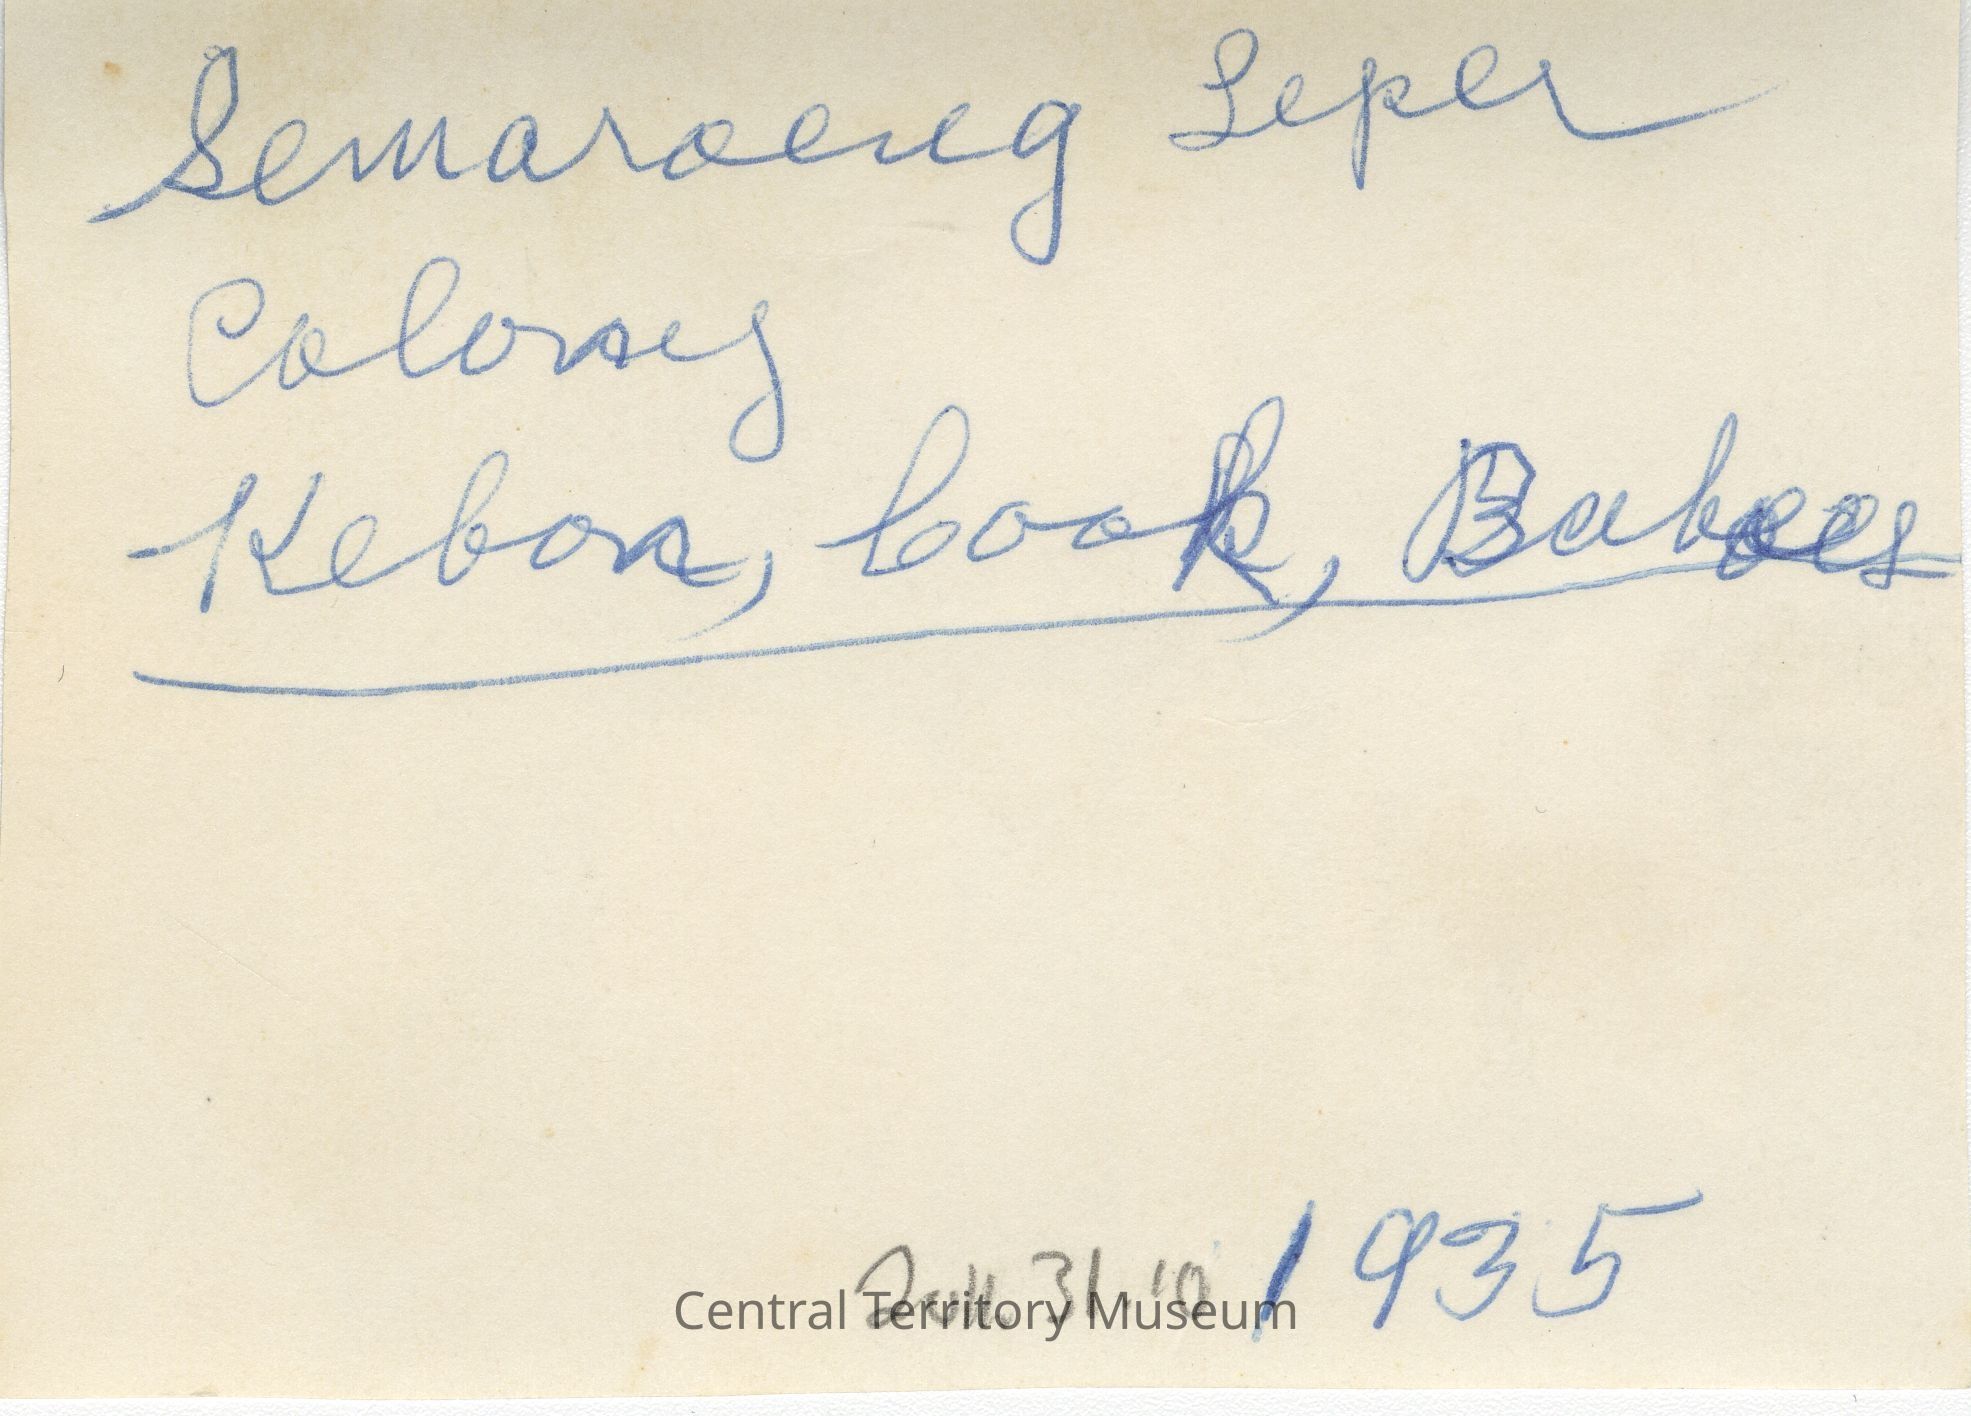 Semaroeng Leper
Colony
Kebon, Cook, Baboes
2011.31.10 1935
Central Territory Museum